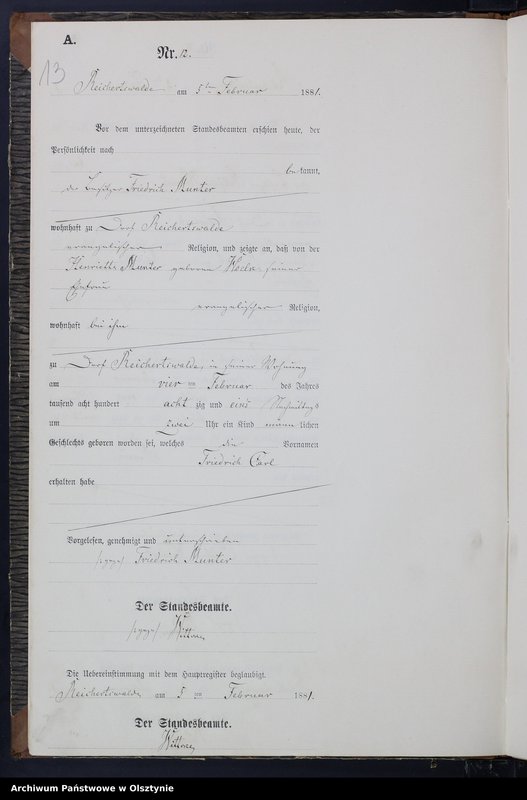 A.
Nr. 12.
13
Reichertswalde am 5ten Februar 1881.
Vor dem unterzeichneten Standesbeamten erschien heute, der
Persönlichkeit nach
bekannt,
der Besitzer Friedrich Munter
wohnhaft zu Dorf Reichertswalde
evangelischer Religion, und zeigte an, daß von der
Henriette Munter geborene seiner
Ehefrau
evangelischer Religion,
wohnhaft bei ihm
zu Dorf Reichertswalde, in seiner Wohnung
am vier ten Februar des Jahres
tausend acht hundert acht zig und eins Nachmittags
um zwei Uhr ein Kind männ lichen
Geschlechts geboren worden sei, welches die Vornamen
Friedrich Carl
erhalten habe
Vorgelesen, genehmigt und unterschrieben
(:gez:) Friedrich Munter
Der Standesbeamte.
(:gez:)
Die Uebereinstimmung mit dem Hauptregister beglaubigt.
Reichertswalde am 5 ten Februar 1881.
Der Standesbeamte.
Archiwum Państwowe w Olsztynie